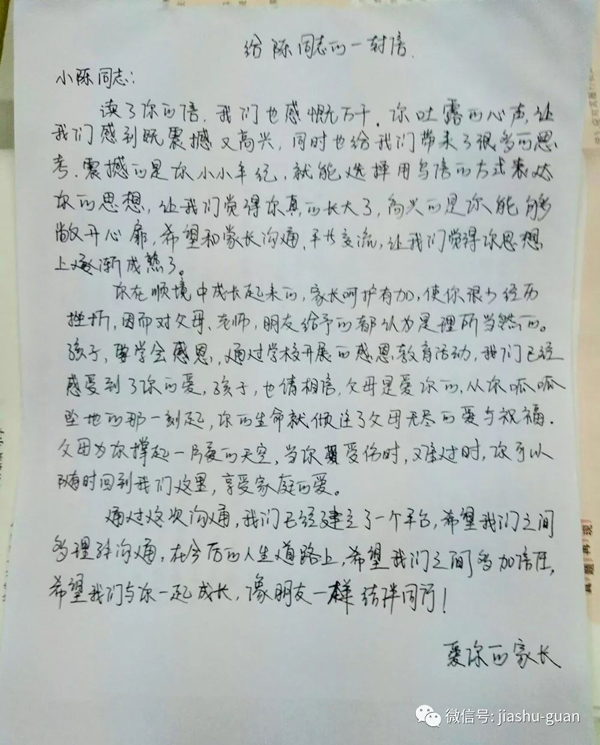 给陈同志的一封信
小陈同志:
读了你的信,我们也感慨万千,你吐露的心声,让
我们感到既震撼又高兴,同时也给我们带来了很多的思
考,震撼的是你小小年纪,就能选择用写信的方式表达
你的思想,让我们觉得你真的长大了,高兴的是你能够
敞开心扉,希望和家长沟通,平等交流,让我们觉得你思想
上逐渐成熟了。
你在顺境中成长起来的,家长呵护有加,使你很少经历
挫折,因而对父母、老师,朋友给予的都认为是理所当然的。
孩子,要学会感恩,通过学校开展的感恩教育活动,我们已经
感受到了你的爱,孩子,也请相信,父母是爱你的,从你呱呱
坠地的那一刻起,你的生命就倾注了父母无尽的爱与祝福.
父母为你撑起一片爱的天空,当你受伤时,难过时,你可以
随时回到我们这里,享受家庭的爱。
通过这次沟通,我们已经建立了一个平台,希望我们之间
多理解沟通,在今后的人生道路上,希望我们之间多加信任,
希望我们与你一起成长,像朋友一样结伴同行!
爱你的家长
微信号: jiashu-guan